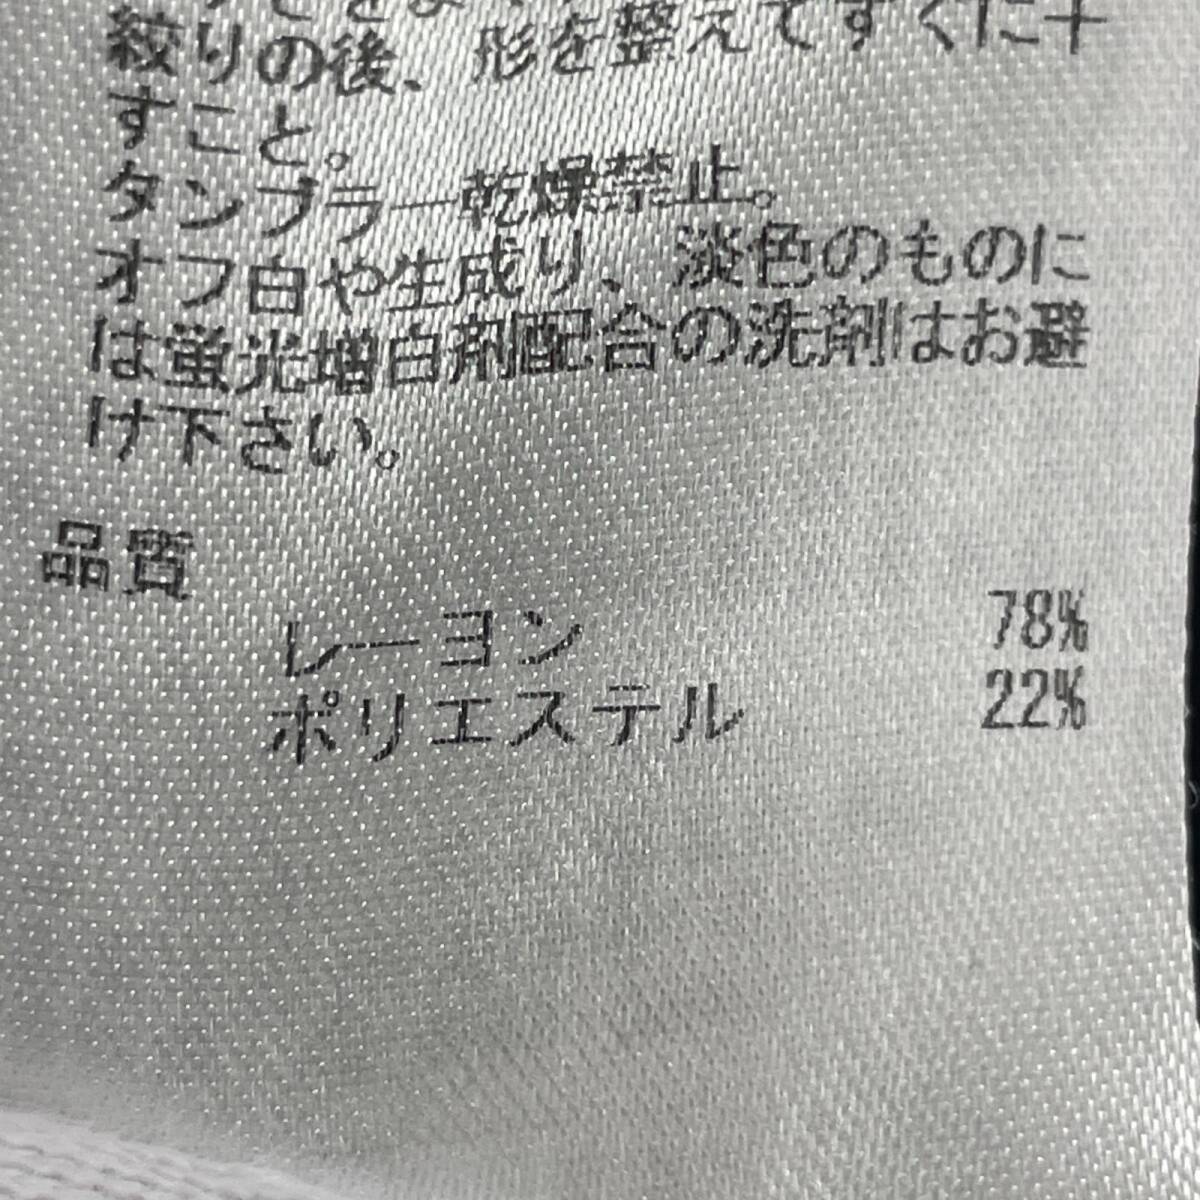 絞りの後、形を整えてすぐに干
すこと。
タンブラー乾燥禁止。
オフ白や生成り、淡色のものに
は蛍光増白剤配合の洗剤はお避
け下さい。
品質
レーヨン 78%
ポリエステル 22%